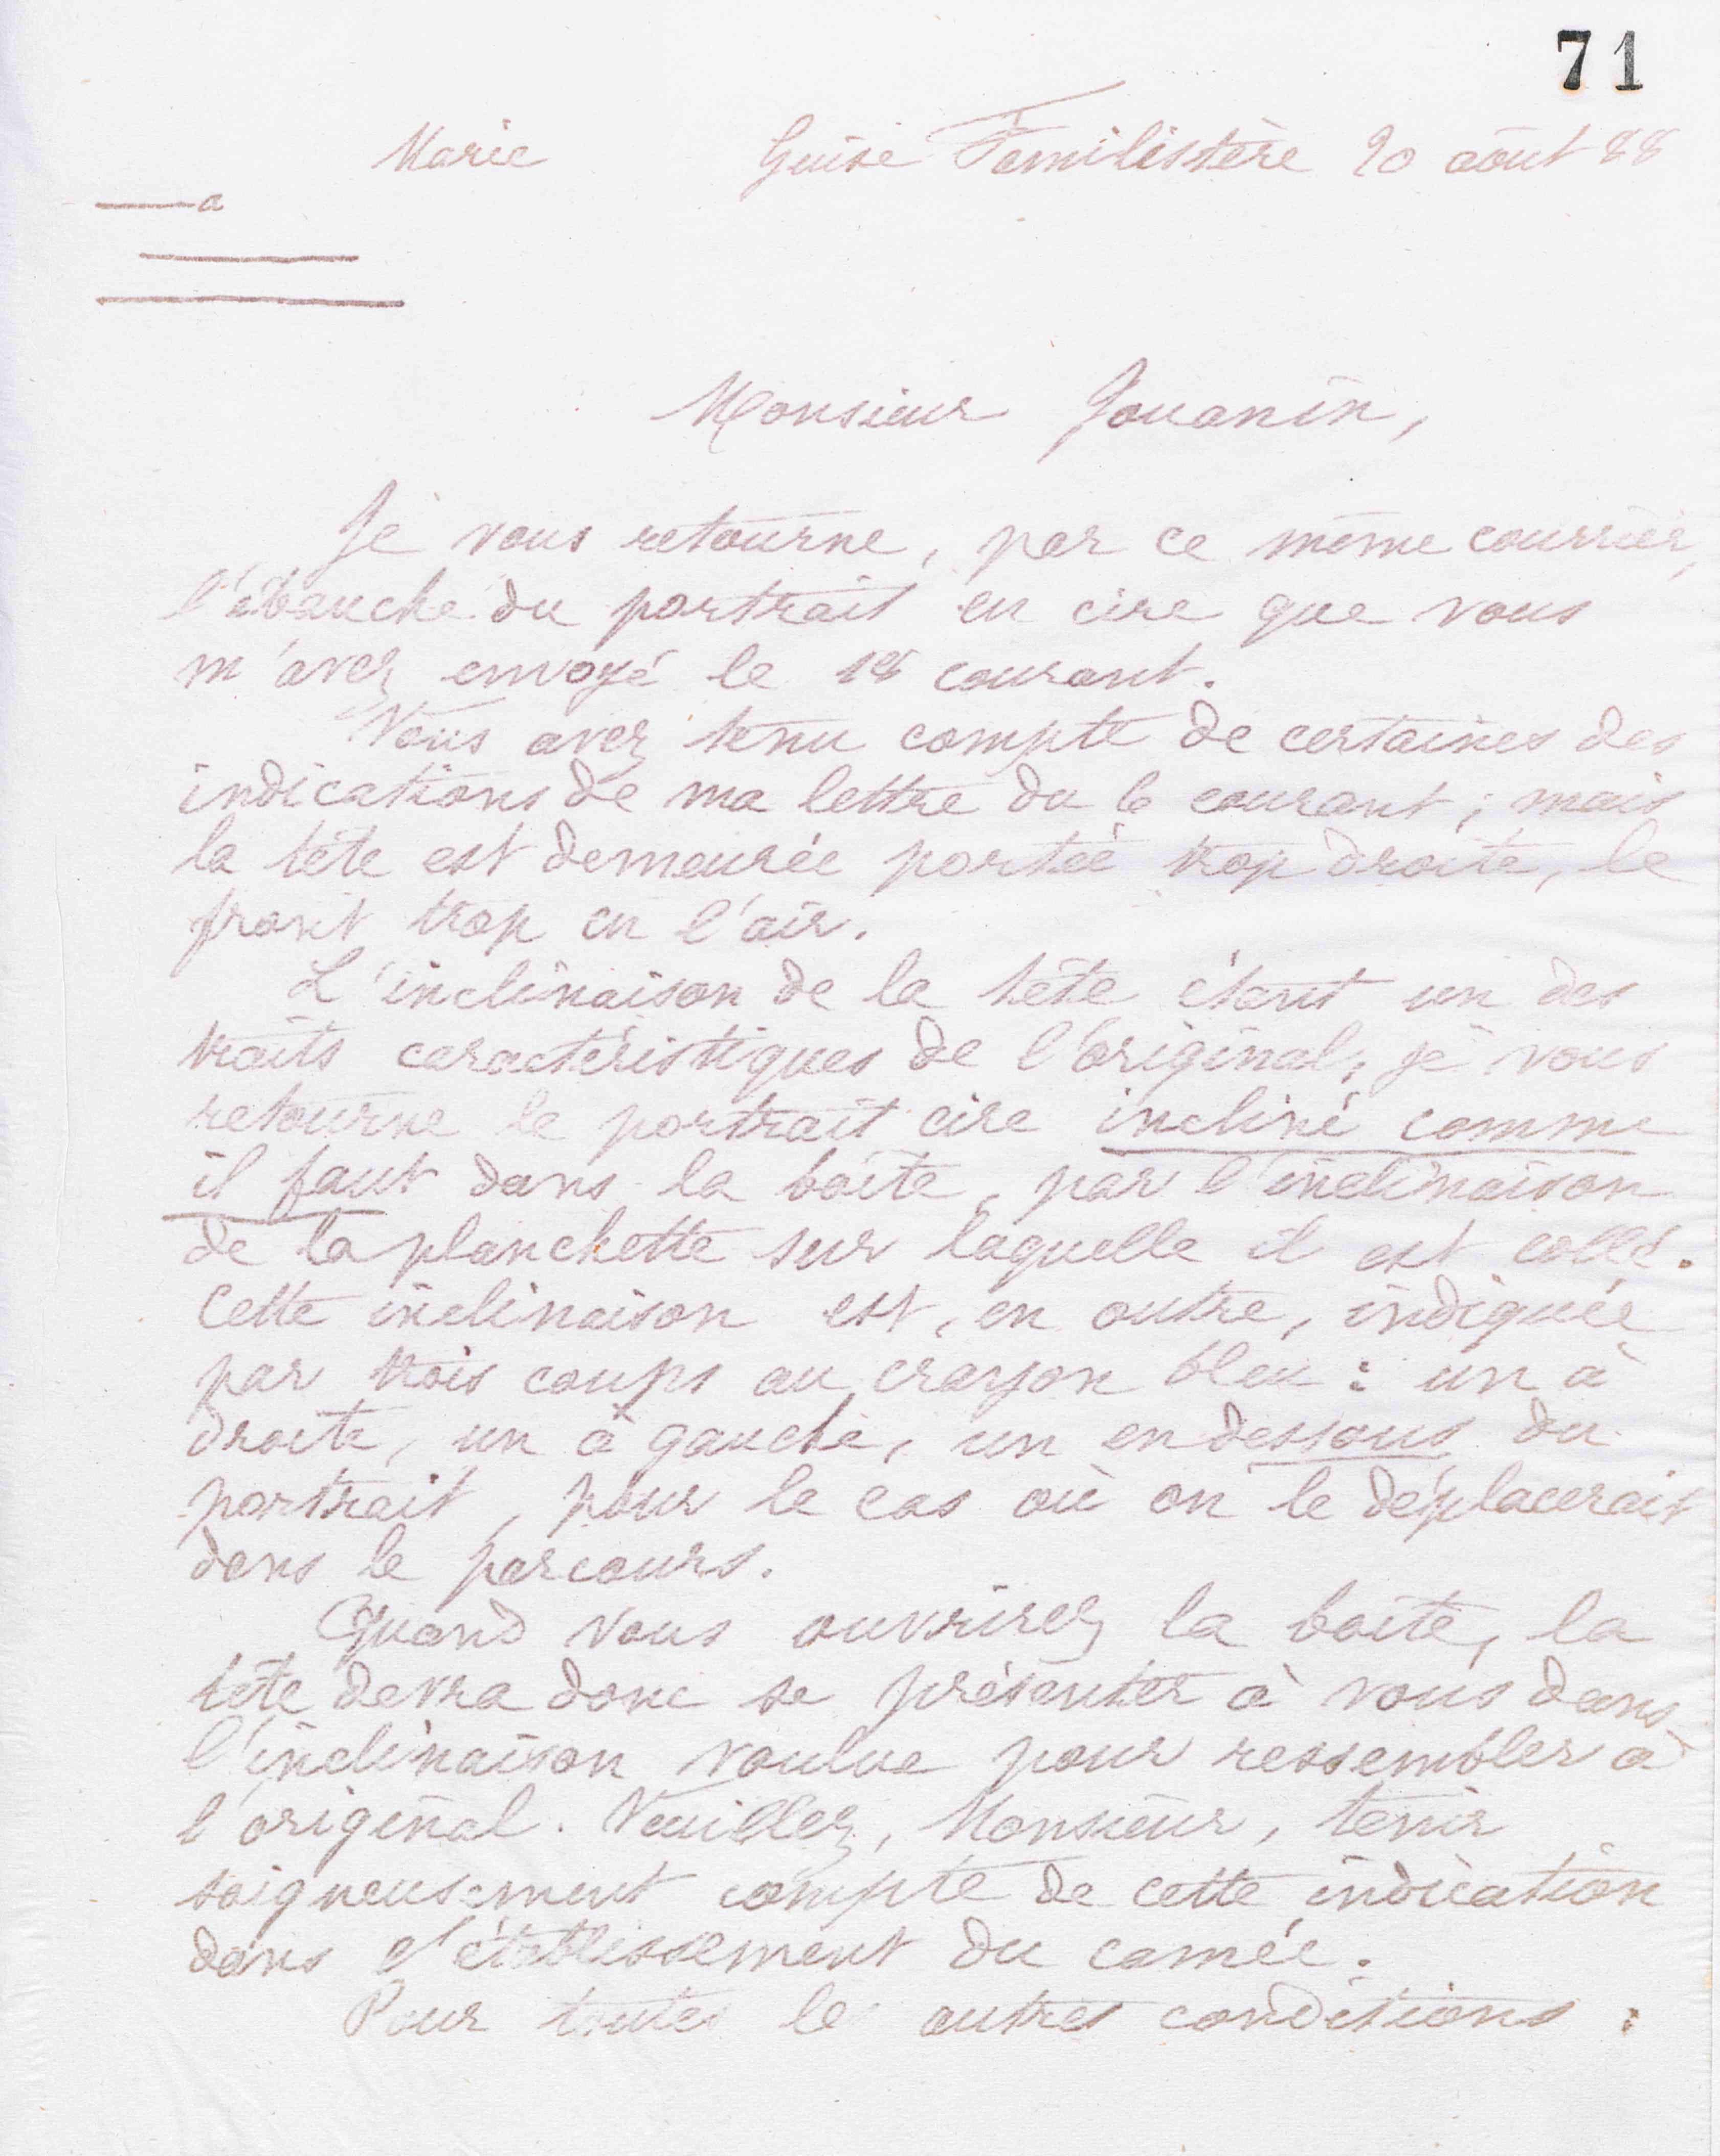 71
Marie Guise Familistère 20 août 88
a
Monsieur Jouanin,
Je vous retourne, par ce même courrier,
l'ébauche du portrait en cire que vous
m'avez envoyé le 18 courant.
Vous avez tenu compte de certaines des
indications de ma lettre du 6 courant ; mais
la tête est demeurée portée trop droite, le
front trop en l'air.
L'inclinaison de la tête étant un des
traits caractéristiques de l'original, je vous
retourne le portrait cire incliné comme
il faut dans la boîte, par l'inclinaison
de la planchette sur laquelle il est collé.
Cette inclinaison est, en outre, indiquée
par trois coups au crayon bleu : un à
droite, un à gauche, un en dessous du
portrait, pour le cas où on le déplacerait
dans le parcours.
Quand vous ouvrirez la boîte, la
tête devra donc se présenter à vous dans
l'inclinaison voulue pour ressembler à
l'original. Veuillez, Monsieur, tenir
soigneusement compte de cette indication
dans l'établissement du camée.
Pour toutes les autres conditions :